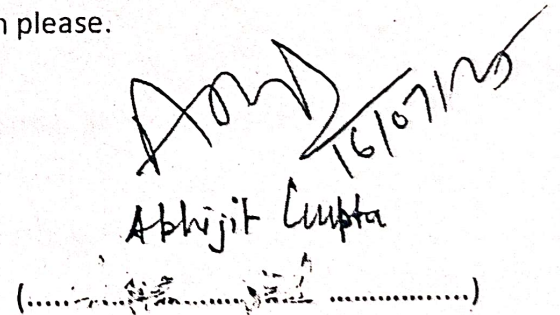 n please.
16/07/25
Abhijit Gupta
(.................................)